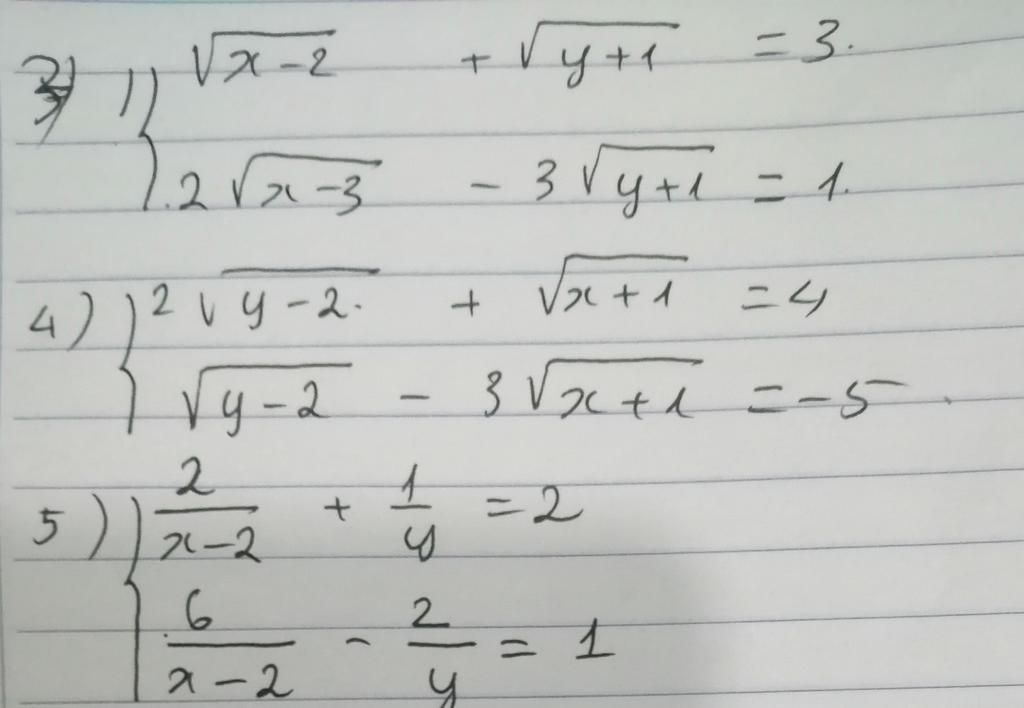 3) 1) { √(x-2) + √(y+1) = 3.
2√(x-3) - 3√(y+1) = 1.
4) { 2√(y-2.) + √(x+1) = 4
√(y-2) - 3√(x+1) = -5
5) { 2/(x-2) + 1/y = 2
6/(x-2) - 2/y = 1